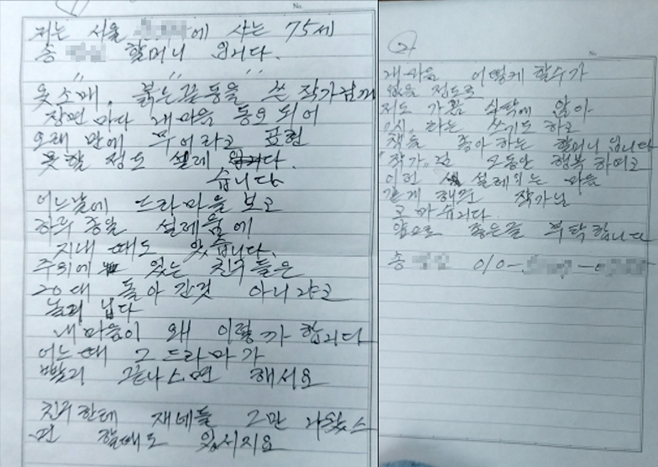 저는 서울 에 사는 75세
송 할머니 입니다.
옷소매, 붉은끝동을 쓴 작가님께
장면 마다 내마음 동요 되어
오래 만에 무어라고 표현
못할 정도 설레
습니다
어느날에 드라마을 보고
하루 종일 설레움에
지내 때도 있습니다.
주위에 있는 친구들은
20대 돌아 간것 아니냐고
놀려 냅다
내마음이 왜 이렇까 합니다
어느때 그 드라마가
빨리 끝나스면 해서요
친구한테 재네들 그만 나왔스
면 할때도 있시지요
2
내마음 어떻게 할수가
없을 정도로
저도 가끔 식탁에 앉아
시, 라는 쓰기도 하고
책을 좋아 하는 할머니 입니다
작가님 그동안 행복 하여고
이런 설레이는 마음
갖게 해준 작가님
고마습니다
앞으로 좋은글 부탁합니다
송 010-